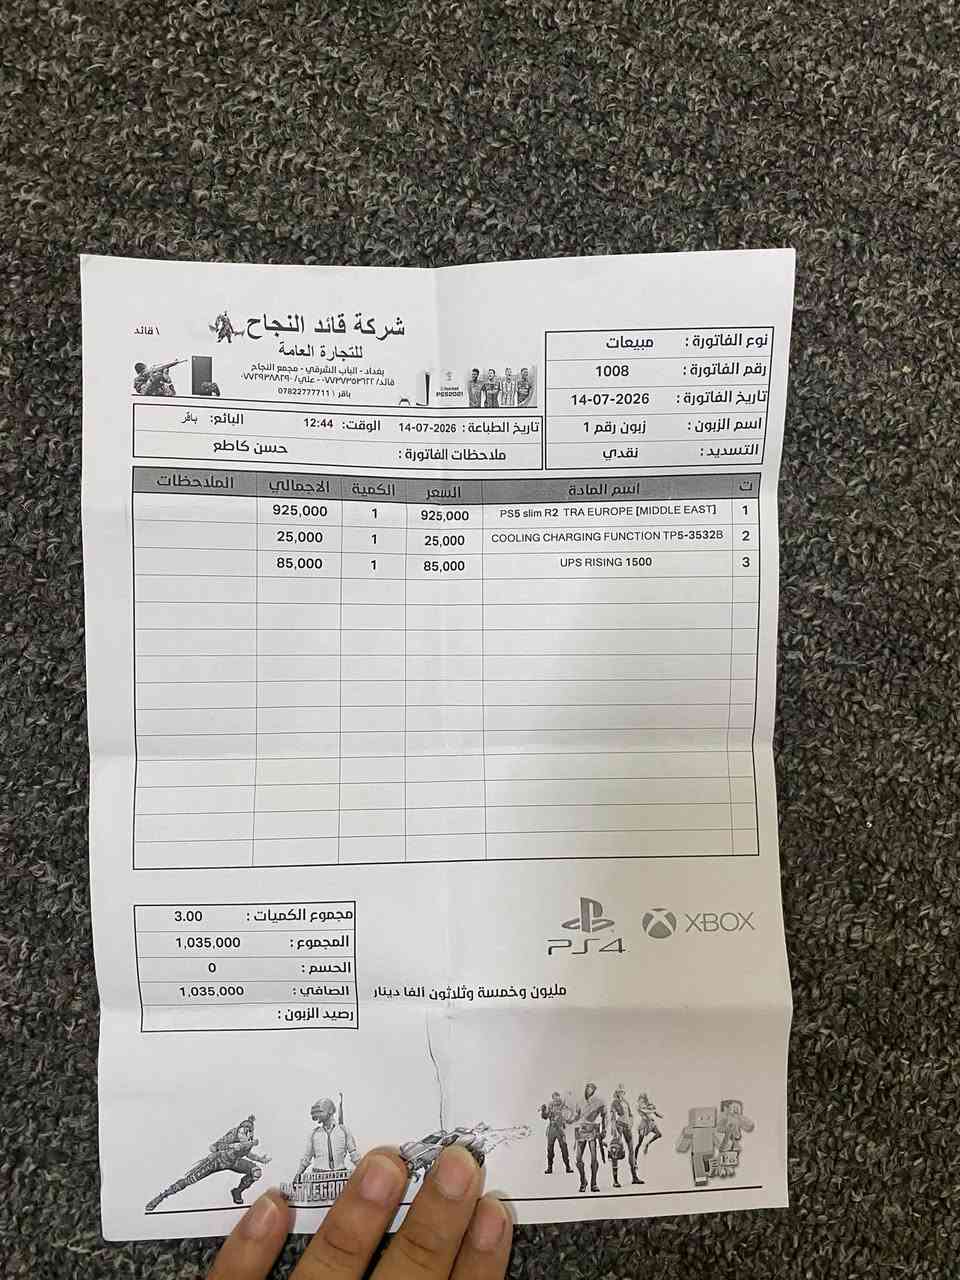 شركة قائد النجاح
للتجارة العامة
بغداد - الباب الشرقي - مجمع النجاح
قائد/ ٠٧٧٣٧٣٥٣٦٢٢ - علي/ ٠٧٧٢٩٣٨٨٢٩٠
باقر \ 07822777711
١ قائد
PES2021
نوع الفاتورة : مبيعات
رقم الفاتورة : 1008
تاريخ الفاتورة : 14-07-2026
اسم الزبون : زبون رقم 1
التسديد : نقدي
تاريخ الطباعة : 14-07-2026 الوقت: 12:44 البائع: باقر
ملاحظات الفاتورة : حسن كاطع
ت اسم المادة السعر الكمية الاجمالي الملاحظات
1 PS5 slim R2 TRA EUROPE [MIDDLE EAST] 925,000 1 925,000
2 COOLING CHARGING FUNCTION TP5-3532B 25,000 1 25,000
3 UPS RISING 1500 85,000 1 85,000
PS4
XBOX
مجموع الكميات : 3.00
المجموع : 1,035,000
الحسم : 0
الصافي : 1,035,000
رصيد الزبون :
مليون وخمسة وثلاثون ألفا دينار